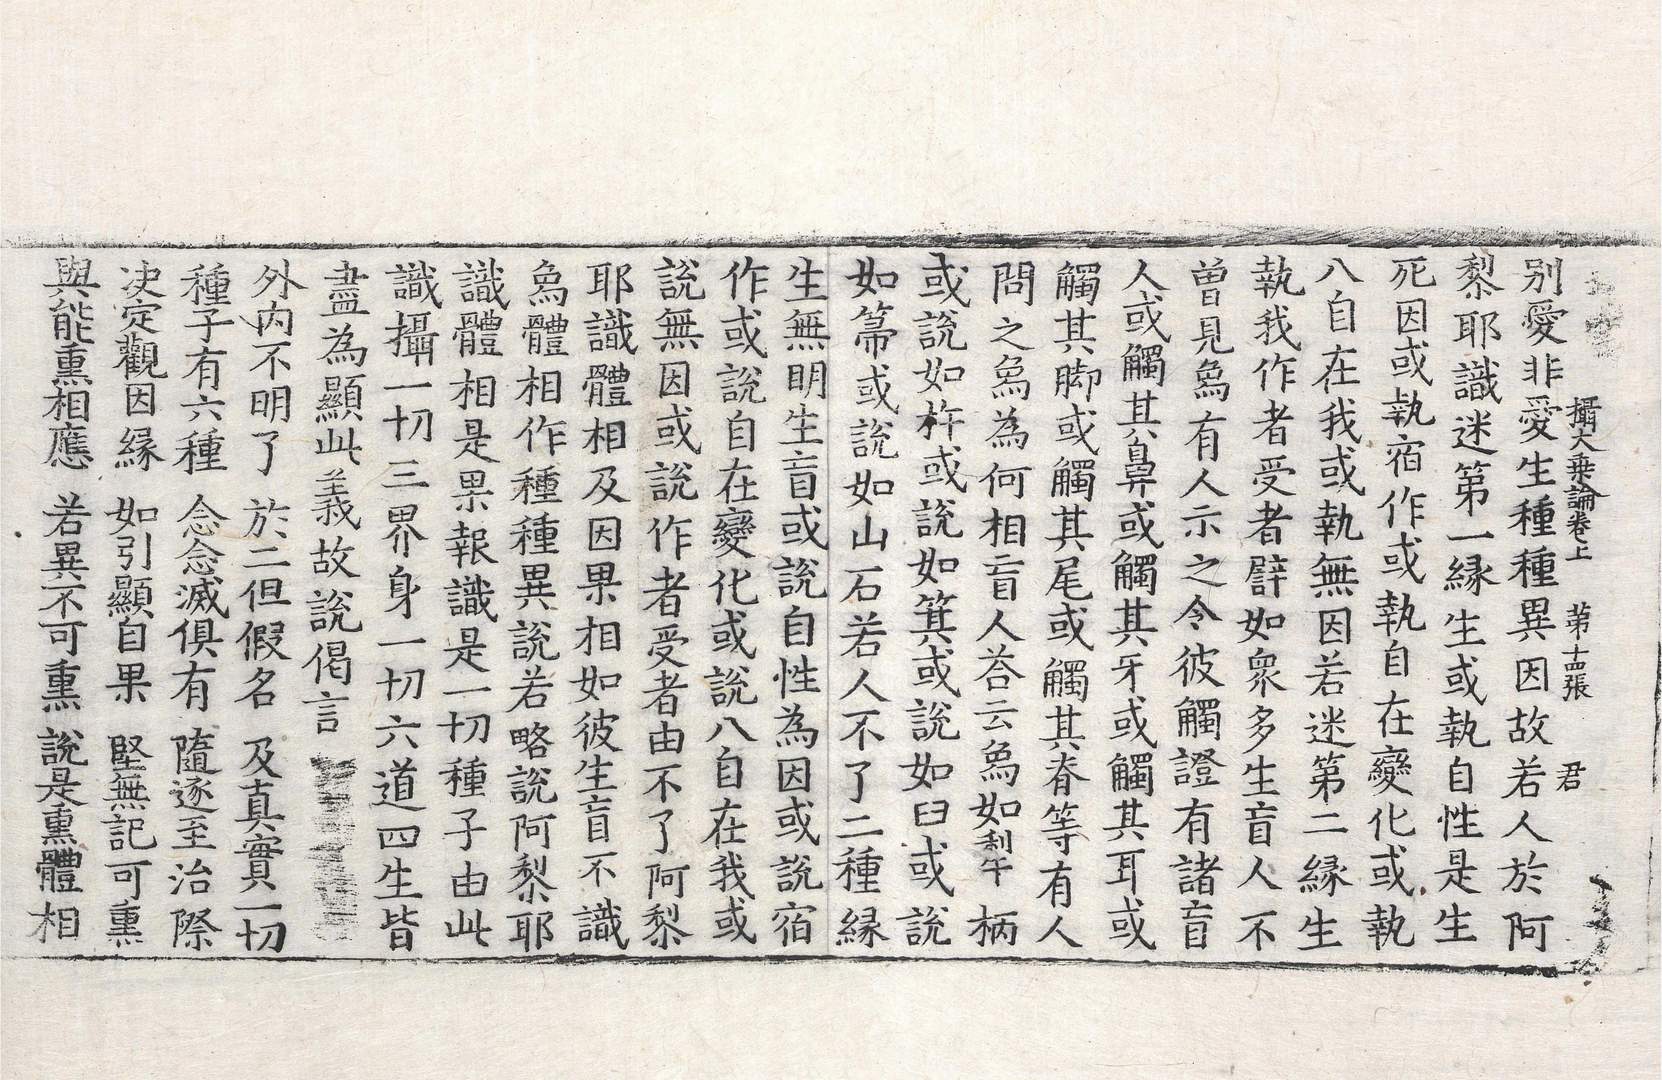 攝大乗論卷上 第十四張 君
別愛非愛生種種異因故若人於阿
棃耶識迷第一緣生或執自性是生
死因或執宿作或執自在變化或執
八自在我或執無因若迷第二緣生
執我作者受者譬如衆多生盲人不
曽見象有人示之令彼觸證有諸盲
人或觸其鼻或觸其牙或觸其耳或
觸其脚或觸其尾或觸其脊等有人
問之象為何相盲人荅云象如犁柄
或說如杵或說如箕或說如臼或說
如箒或說如山石若人不了二種緣
生無明生盲或說自性為因或說宿
作或說自在變化或說八自在我或
說無因或說作者受者由不了阿棃
耶識體相及因果相如彼生盲不識
象體相作種種異說若略說阿棃耶
識體相是果報識是一切種子由此
識攝一切三界身一切六道四生皆
盡為顯此義故說偈言
外內不明了 於二但假名 及真實一切
種子有六種 念念滅俱有 隨逐至治際
決定觀因緣 如引顯自果 堅無記可熏
與能熏相應 若異不可熏 說是熏體相